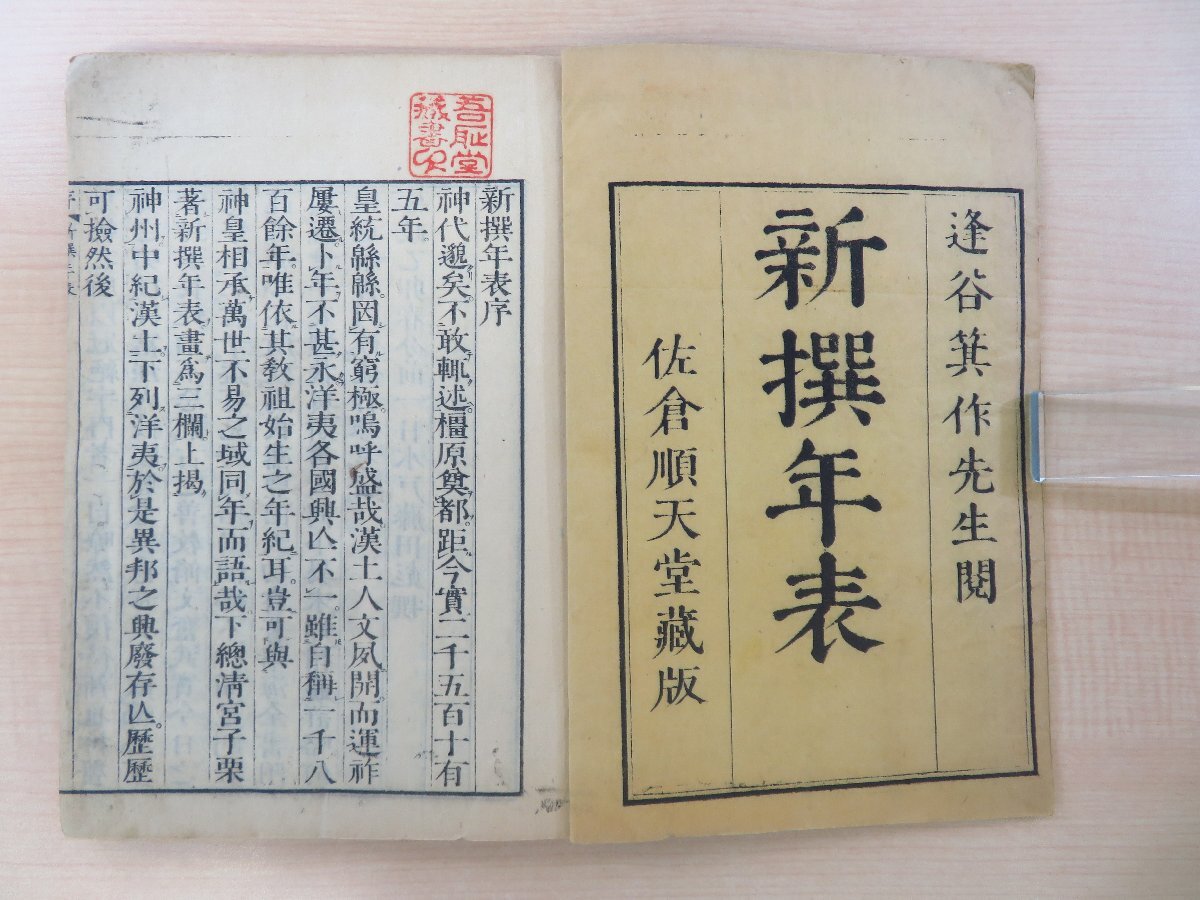 逢谷箕作先生閲
新撰年表
佐倉順天堂藏版
吾恥堂
藏書
新撰年表序
神代邈矣不敢輒述橿原奠都距今實二千五百十有
五年
皇統緜緜罔有窮極嗚呼盛哉漢土人文夙開而運祚
屢遷卜年不甚永洋夷各國興亾不一雖自稱一千八
百餘年唯依其敎祖始生之年紀耳豈可與
神皇相承萬世不易之域同年而語哉下總淸宮子栗
著新撰年表畫爲三欄上揭
神州中紀漢土下列洋夷於是異邦之興廢存亾歷歷
可撿然後